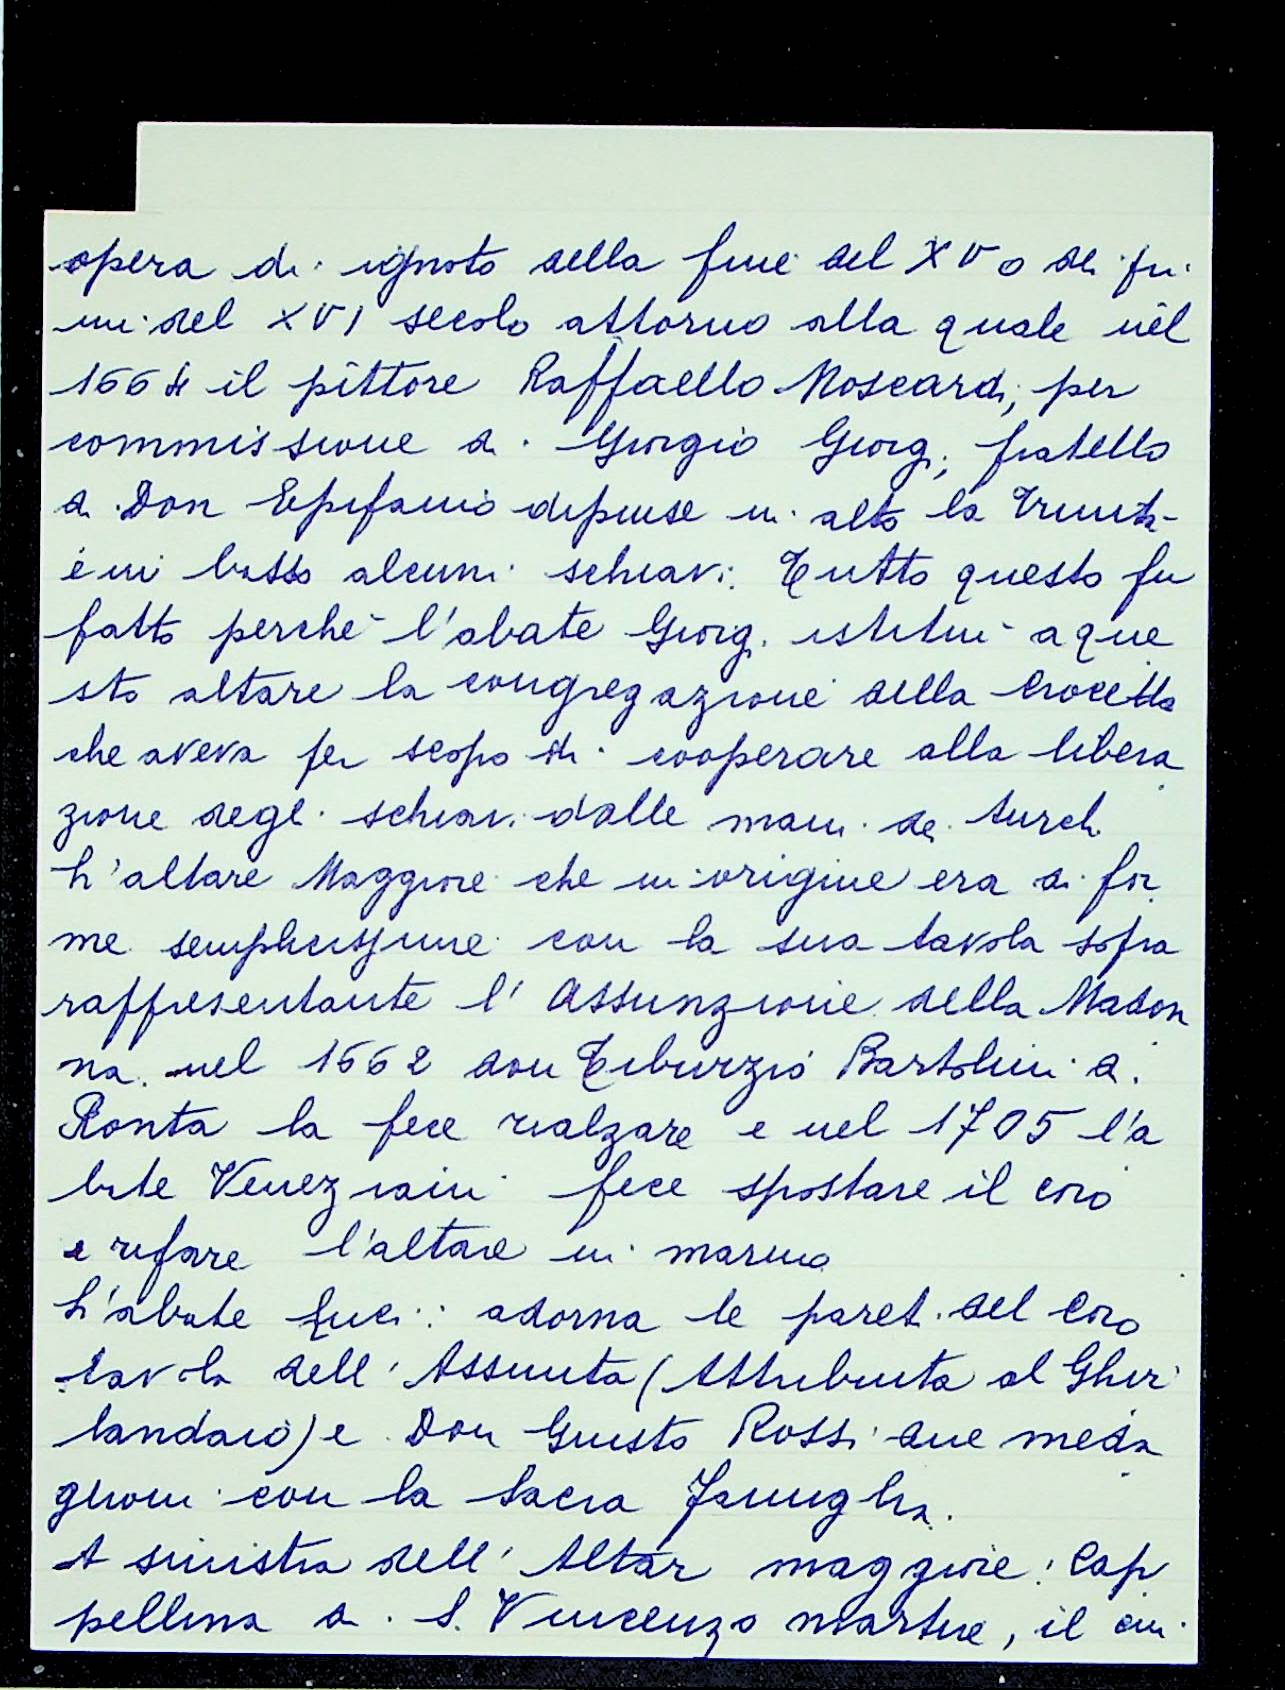 opera di ignoto della fine del XV o dei pri
mi del XVI secolo attorno alla quale nel
1664 il pittore Raffaello Moscardi, per
commissione di Giorgio Giorgi, fratello
di Don Epifanio dipinse in alto la Trinità
e in basso alcuni schiavi. Tutto questo fu
fatto perchè l'abate Giorgi istituì a que
sto altare la congregazione della Crocetta
che aveva per scopo di cooperare alla libera
zione degli schiavi dalle mani dei turchi
L'altare Maggiore che in origine era di for
me semplicissime con la sua tavola sopra
raffresentante l'Assunzione della Madon
na. nel 1662 don Tiburzio Bartolini di
Ronta la fece rialzare e nel 1705 l'a
bate Veneziani fece spostare il coro
e rifare l'altare in marmo
L'abate Luci: adorna le pareti del Coro
tavola dell'Assunta (Attribuita al Ghir
landaio) e Don Giusto Rossi due meda
glioni con la Sacra Famiglia.
A sinistra dell'Altar maggiore: Cap
pellina di S. Vincenzo martire, il cui